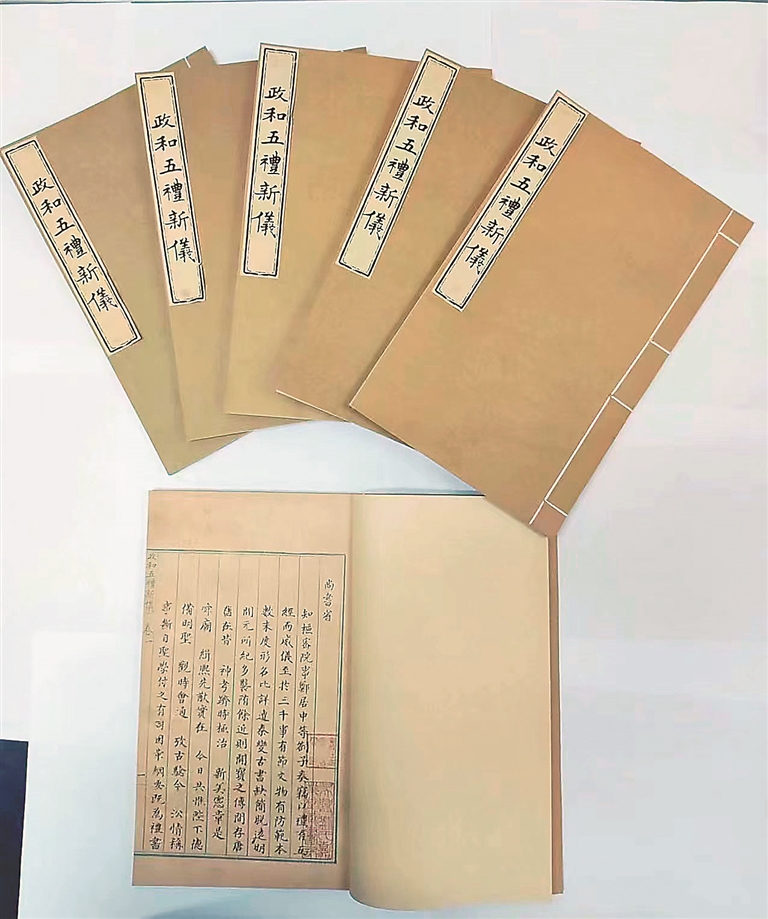 政和五禮新儀
政和五禮新儀
政和五禮新儀
政和五禮新儀
政和五禮新儀
尚書省
知樞密院事鄭居中等劄子奏竊以禮有五
經而威儀至於三千事有節文物有防範本
數末度形名比詳遭秦變古書缺簡脫遠明
開元所紀多襲隋餘近則開寶之傳間存唐
舊在昔 神考躋時極治 新美憲章是
廟 緝熙先猷實在 今日共惟陛下德
備明聖 觀時會通 攷古驗今 沿情稱
事斷自聖學付之有司因革綱要既為禮書
政和五禮新儀 卷一